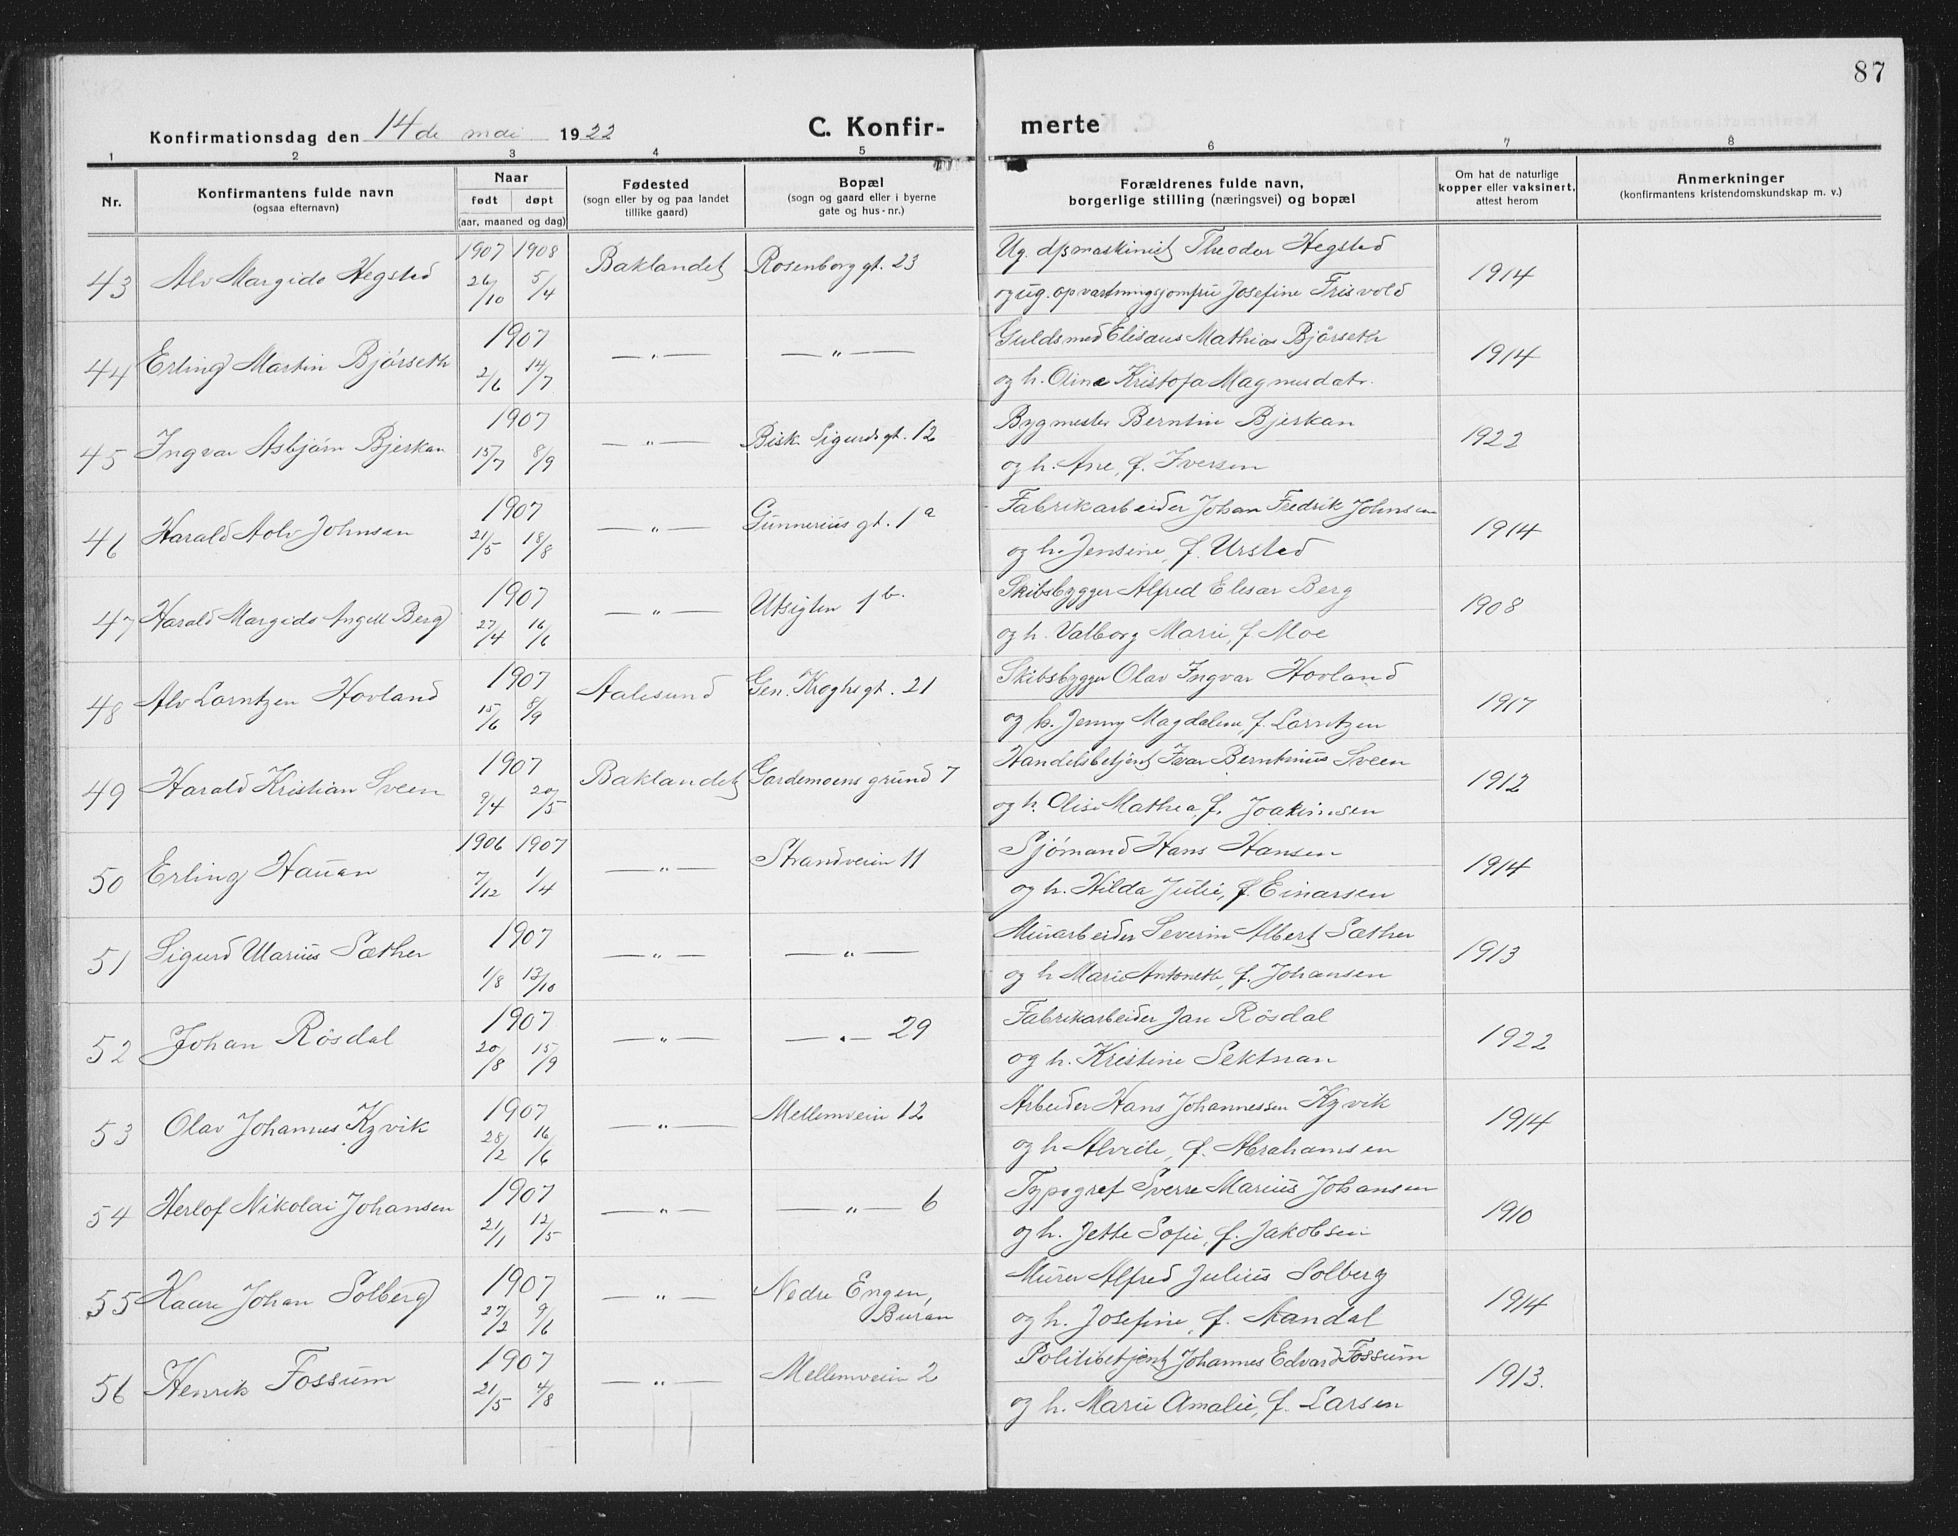 87
Konfirmationsdag den 14de mai 1922 C. Konfir- merte
1 2 3 4 5 6 7 8
Nr.
Konfirmantens fulde navn
(ogsaa efternavn)
Naar
født døpt
(aar, maaned og dag)
Fødested
(sogn eller by og paa landet
tillike gaard)
Bopæl
(sogn og gaard eller i byerne
gate og hus-nr.)
Forældrenes fulde navn,
borgerlige stilling (næringsvei) og bopæl
Om hat de naturlige
kopper eller vaksinert,
attest herom
Anmerkninger
(konfirmantens kristendomskundskap m. v.)
1907 1908 Ug. dpsmaskinist Theodor Hegsted
43 Alv Margido Hegsted 26/10 5/4 Baklandet Rosenborg gt. 23 1914
og ug. opvartningsjomfru Josefine Frisvold
1907 Guldsmed Elisaus Mathias Bjørseth
44 Erling Martin Bjørseth 2/6 14/7 — " — — " — 1914
og h. Oline Kristofa Magnusdatr.
1907 Bygmester Berntin Bjerkan
45 Ingvar Asbjørn Bjerkan 15/7 8/9 — " — Bisk. Sigurdsgt. 12 1922
og h. Ane, f. Iversen
1907 Fabrikarbeider Johan Fredrik Johnsen
46 Harald Aolv Johnsen 21/5 18/8 — " — Gunnerius gt. 1a 1914
og h. Jensine, f. Ursted
1907 Skibsbygger Alfred Elesar Berg
47 Harald Margido Angell Berg 27/4 16/6 — " — Utsigten 1b. 1908
og h. Valborg Marie, f. Moe
1907 Skibsbygger Olav Ingvar Hovland
48 Alv Lorntzen Hovland 15/6 8/9 Aalesund Gen. Kroghsgt. 21 1917
og h. Jenny Magdalene, f. Lorntzen
1907 Handelsbetjent Ivar Berntinius Sveen
49 Harald Kristian Sveen 9/4 20/5 Baklandet Gardemoens grund 7 1912
og h. Olise Mathea f. Joakimsen
1906 1907 Sjømand Hans Hansen
50 Erling Hauan 7/12 1/4 — " — Strandveien 11 1914
og h. Hilda Julie, f. Einarsen
1907 Murarbeider Severin Albert Sæther
51 Sigurd Marius Sæther 1/8 13/10 — " — — " — 1913
og h Marie Antonette, f. Johansen
1907 Fabrikarbeider Jan Røsdal
52 Johan Røsdal 20/8 15/9 — " — — " — 29 1922
og h. Kristine Sektnan
1907 Arbeider Hans Johannessen Kyvik
53 Olav Johannes Kyvik 28/2 16/6 — " — Mellemveien 12 1914
og h Alvide, f. Abrahamsen
1907 Typograf Sverre Marius Johansen
54 Herlof Nikolai Johansen 21/1 12/5 — " — — " — 6 1910
og h. Jette Sofie, f. Jakobsen
1907 Murer Alfred Julius Solberg
55 Kaare Johan Solberg 27/2 9/6 — " — Nedre Engen, Buran 1914
og h. Josefine, f. Aandal
1907 Politibetjent Johannes Edvard Fossum
56 Henrik Fossum 21/5 4/8 — " — Mellemveien 2 1913.
og h. Marie Amalie, f. Larsen